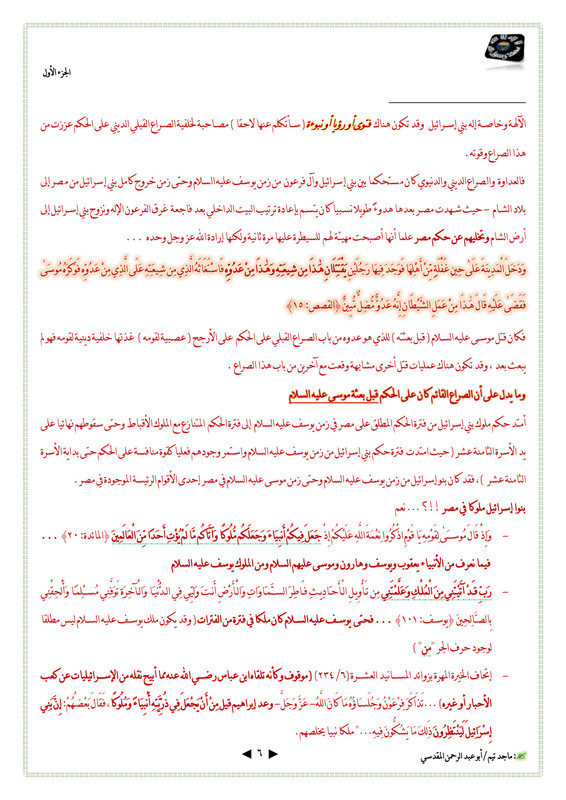 الجزء الأول
الآلهة وخاصة إله بني إسرائيل وقد تكون هناك فتوى أو رؤيا أو نبوءة ( سأتكلم عنها لاحقا ) مصاحبة لخلفية الصراع القبلي الديني على الحكم عززت من
هذا الصراع وقوته .
فالعداوة والصراع الديني والدنيوي كان مستحكما بين بني إسرائيل وآل فرعون من زمن يوسف عليه السلام وحتى زمن خروج كامل بني إسرائيل من مصر إلى
بلاد الشام – حيث شهدت مصر بعدها هدوءً طويلا نسبيا كان يتسم بإعادة ترتيب البيت الداخلي بعد فاجعة غرق الفرعون الإله ونزوح بني إسرائيل إلى
أرض الشام وتخليهم عن حكم مصر علما أنها أصبحت مهيئة لهم للسيطرة عليها مرة ثانية ولكنها إرادة الله عز وجل وحده ...
وَدَخَلَ الْمَدِينَةَ عَلَى حِينِ غَفْلَةٍ مِّنْ أَهْلِهَا فَوَجَدَ فِيهَا رَجُلَيْنِ يَقْتَتِلَانِ هَٰذَا مِن شِيعَتِهِ وَهَٰذَا مِنْ عَدُوِّهِ فَاسْتَغَاثَهُ الَّذِي مِن شِيعَتِهِ عَلَى الَّذِي مِنْ عَدُوِّهِ فَوَكَزَهُ مُوسَىٰ
فَقَضَىٰ عَلَيْهِ قَالَ هَٰذَا مِنْ عَمَلِ الشَّيْطَانِ إِنَّهُ عَدُوٌّ مُّضِلٌّ مُّبِينٌ ﴿القصص: ١٥﴾
فكان قتل موسى عليه السلام ( قبل بعثته ) للذي هو عدوه من باب الصراع القبلي على الحكم على الأرجح ( عصبية لقومه ) غذتها خلفية دينية لقومه فهو لم
يبعث بعد ، وقد تكون هناك عمليات قتل أخرى مشابهة وقعت مع آخرين من باب هذا الصراع .
وما يدل على أن الصراع القائم كان على الحكم قبل بعثة موسى عليه السلام
أمتد حكم ملوك بني إسرائيل من فترة الحكم المطلق على مصر في زمن يوسف عليه السلام إلى فترة الحكم المتنازع مع الملوك الأقباط وحتى سقوطهم نهائيا على
يد الأسرة الثامنة عشر ( حيث امتدت فترة حكم بني إسرائيل من زمن يوسف عليه السلام واستمر وجودهم فعليا كقوة منافسة على الحكم حتى بداية الأسرة
الثامنة عشر ) ، فقد كان بنو إسرائيل من زمن يوسف عليه السلام وحتى زمن موسى عليه السلام في مصر إحدى الأقوام الرئيسة الموجودة في مصر .
بنوا إسرائيل ملوكا في مصر !!؟... نعم
- وَإِذْ قَالَ مُوسَىٰ لِقَوْمِهِ يَا قَوْمِ اذْكُرُوا نِعْمَةَ اللَّهِ عَلَيْكُمْ إِذْ جَعَلَ فِيكُمْ أَنبِيَاءَ وَجَعَلَكُم مُّلُوكًا وَآتَاكُم مَّا لَمْ يُؤْتِ أَحَدًا مِّنَ الْعَالَمِينَ ﴿المائدة: ٢٠﴾ ...
فيما نعرف من الأنبياء يعقوب ويوسف وهارون وموسى عليهم السلام ومن الملوك يوسف عليه السلام
- رَبِّ قَدْ آتَيْتَنِي مِنَ الْمُلْكِ وَعَلَّمْتَنِي مِن تَأْوِيلِ الْأَحَادِيثِ فَاطِرَ السَّمَاوَاتِ وَالْأَرْضِ أَنتَ وَلِيِّي فِي الدُّنْيَا وَالْآخِرَةِ تَوَفَّنِي مُسْلِمًا وَأَلْحِقْنِي
بِالصَّالِحِينَ ﴿يوسف: ١٠١﴾ ... فحتى يوسف عليه السلام كان ملكا في فترة من الفترات ( وقد يكون ملك يوسف عليه السلام ليس مطلقا
لوجود حرف الجر "مِن" )
- إتحاف الخيرة المهرة بزوائد المسانيد العشرة (٦/ ٢٣٤) (موقوف وكأنه تلقاه ابن عباس رضي الله عنه مما أبيح نقله من الإسرائيليات عن كعب
الأحبار أو غيره) ...تَذَاكَرَ فِرْعَوْنُ وَجُلَسَاؤُهُ مَا كَانَ اللَّهُ- عَزَّ وَجَلَّ- وعد إبراهيم قيل مِنْ أَنْ يَجْعَلَ فِي ذُرِّيَّتِهِ أَنْبِيَاءً وَمُلُوكًا ، فَقَالَ بَعْضُهُمْ: إِنَّ بَنِي
إِسْرَائِيلَ لَيَنْتَظِرُونَ ذَلِكَ مَا يَشُكُّونَ فِيهِ..." ملكا نبيا يخلصهم .
: ماجد تيم / أبو عبد الرحمن المقدسي
٦